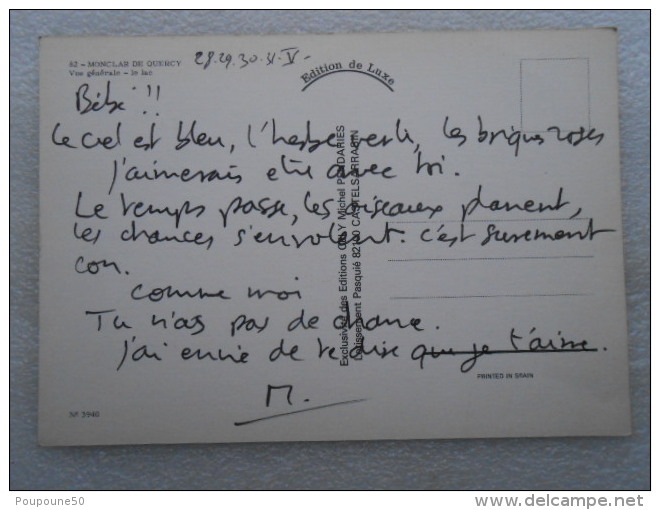 82 – MONCLAR DE QUERCY
Vue générale – le lac
28.29.30.31.V-
Edition de Luxe
Bébé !!
Le ciel est bleu, l'herbe verte, les briques roses
j'aimerais etre avec toi.
Le temps passe, les oiseaux planent,
les chances s'envolent. c'est surement
con.
comme moi
Tu n'as pas de chance.
J'ai envie de te dire que je t'aime.
M.
Exclusivité des Editions Michel POUDARIES
Lotissement Pasquié 82100 CASTELSARRASIN
PRINTED IN SPAIN
Nº 5940
Poupoune50
www.delcampe.net